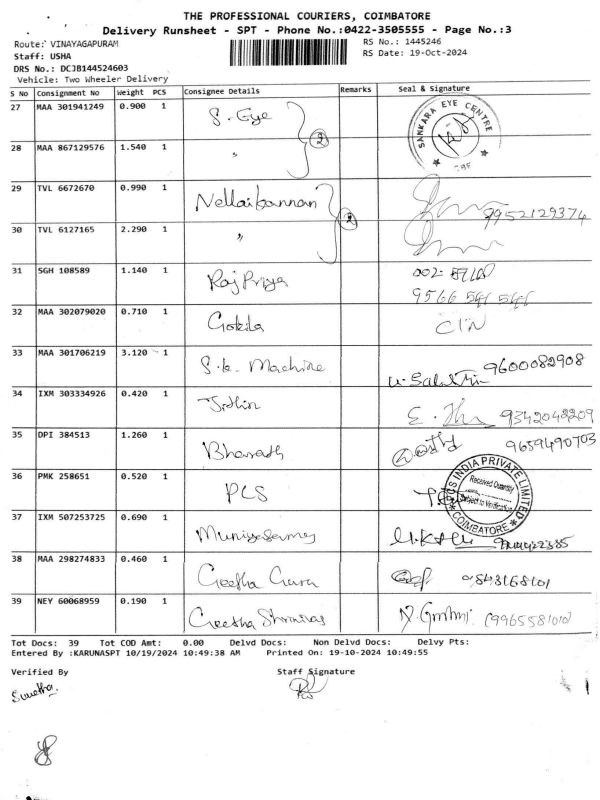 THE PROFESSIONAL COURIERS, COIMBATORE
Delivery Runsheet - SPT - Phone No.:0422-3505555 - Page No.:3
Route: VINAYAGAPURAM RS No.: 1445246
Staff: USHA RS Date: 19-Oct-2024
DRS No.: DCJB144524603
Vehicle: Two Wheeler Delivery
S No Consignment No Weight PCS Consignee Details Remarks Seal & Signature
27 MAA 301941249 0.900 1 S. Eye 2 SANKARA EYE CENTRE CBE
28 MAA 867129576 1.540 1 "
29 TVL 6672670 0.990 1 Nellaikannan 2 9952129374
30 TVL 6127165 2.290 1 "
31 SGH 108589 1.140 1 Raj Priya
9566 546 546
32 MAA 302079020 0.710 1 Gokila
33 MAA 301706219 3.120 1 S.k. Machine 9600082908
34 IXM 303334926 0.420 1 Jithin 9342043209
35 DPI 384513 1.260 1 Bharath 9659490703
36 PMK 258651 0.520 1 PCS PCS INDIA PRIVATE LIMITED
Received Quantity
Subject to Verification
COIMBATORE
37 IXM 507253725 0.690 1 Muniyasamy
38 MAA 298274833 0.460 1 Geetha 9843168101
39 NEY 60068959 0.190 1 Geetha (9965581010)
Tot Docs: 39 Tot COD Amt: 0.00 Delvd Docs: Non Delvd Docs: Delvy Pts:
Entered By :KARUNASPT 10/19/2024 10:49:38 AM Printed On: 19-10-2024 10:49:55
Verified By Staff Signature